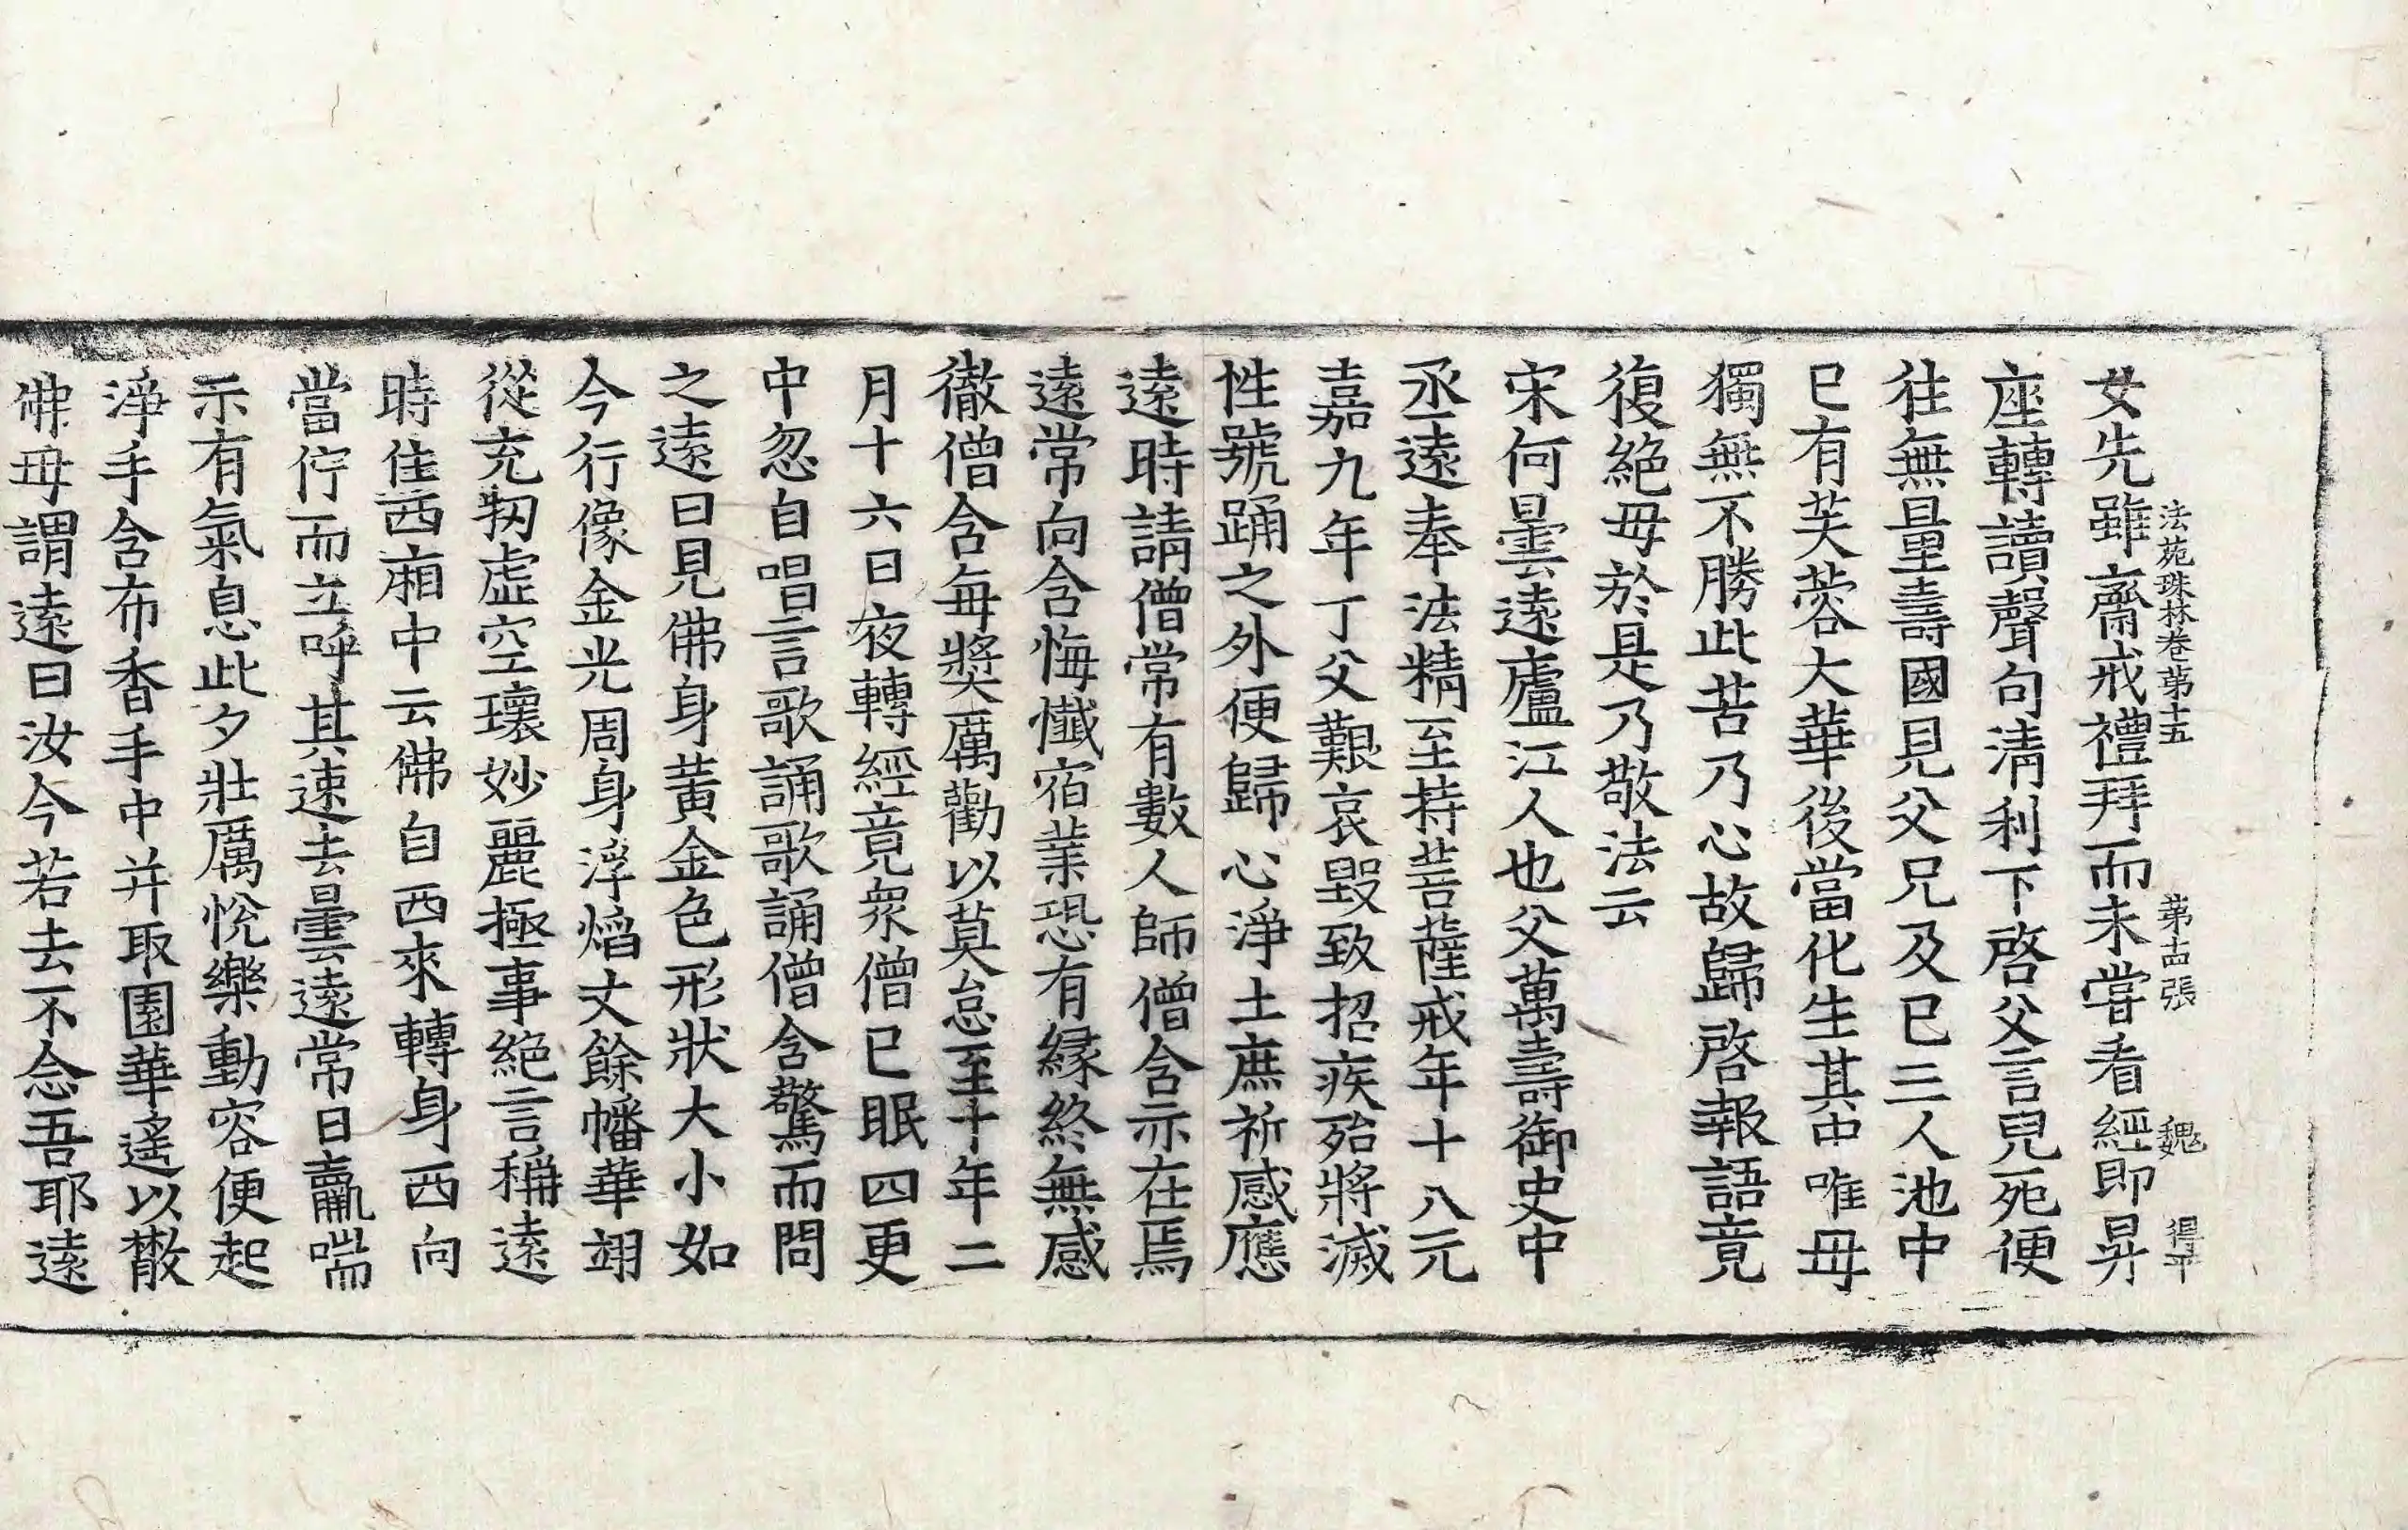 法苑珠林卷第十五 第古張 魏 得平
女先雖齋戒禮拜而未甞看經即昇
座轉讀聲句清利下啓父言兒死便
往無量壽國見父兄及已三人池中
已有芙蓉大華後當化生其中唯毋
獨無不勝此苦乃心故歸啓報語竟
復絕毋於是乃敬法云
宋何曇遠廬江人也父萬壽御史中
丞遠奉法精至持菩薩戒年十八元
嘉九年丁父艱哀毀致招疾殆將滅
性號踊之外便歸心淨土庶祈感應
遠時請僧常有數人師僧含亦在焉
遠常向含悔懺宿業恐有緣終無感
徹僧含每獎厲勸以莫怠至十年二
月十六日夜轉經竟衆僧已眠四更
中忽自唱言歌誦歌誦僧含驚而問
之遠曰見佛身黃金色形狀大小如
今行像金光周身浮熖丈餘幡華翊
從充牣虛空瓌妙麗極事絕言稱遠
時住西廂中云佛自西來轉身西向
當佇而立呼其速去曇遠常日羸喘
示有氣息此夕壯厲悅樂動容便起
淨手含布香手中并取園華遙以散
佛毋謂遠曰汝今若去不念吾耶遠